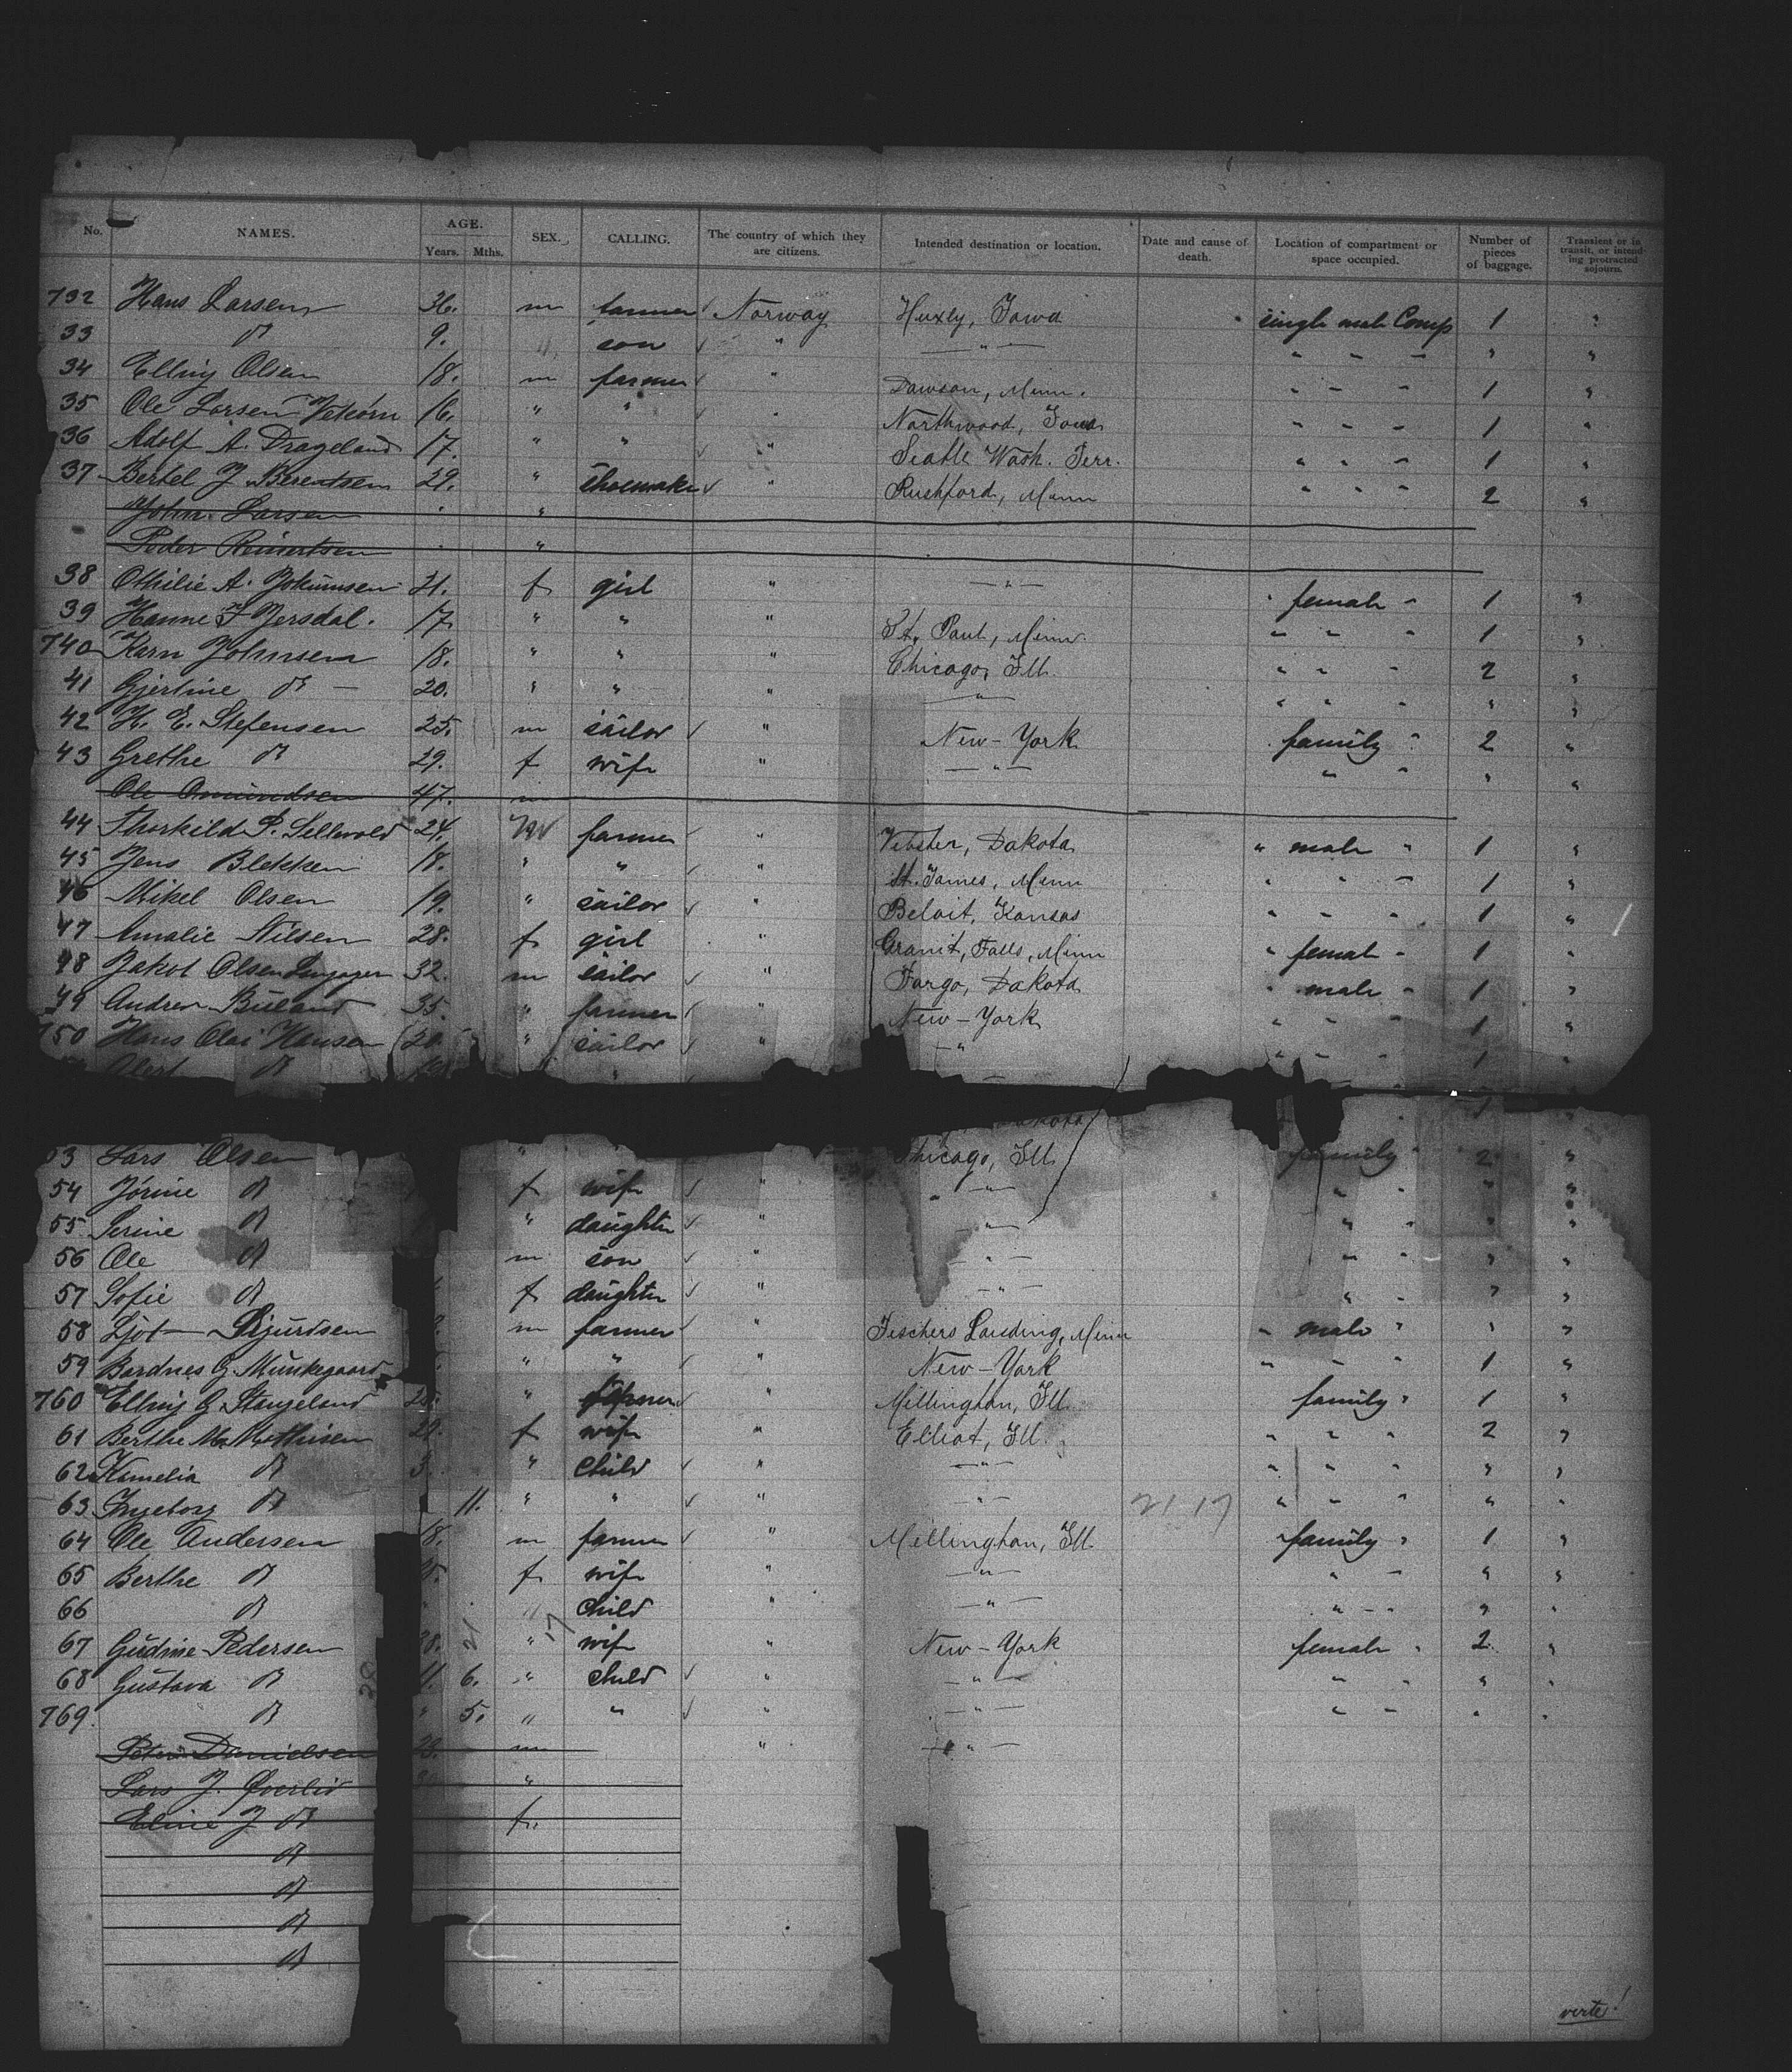 No. NAMES. AGE. Years. Mths. SEX. CALLING. The country of which they are citizens. Intended destination or location. Date and cause of death. Location of compartment or space occupied. Number of pieces of baggage. Transient or in transit, or intending protracted sojourn.
732 Hans Larsen 36. m farmer Norway Huxly, Iowa single male Comp 1 "
33 do 9. " son " — " — " " " " "
34 Elling Olsen 18. m farmer " Dawson, Minn. " " " 1 "
35 Ole Larsen 16. " " " Northwood, Iowa " " " 1 "
36 Adolf A. Drageland 17. " " " Seatle Wash. Terr. " " " 1 "
37 Bertel J Berentsen 29. " shoemaker " Rushford, Minn " " " 2 "
John Larsen "
Peder Reinertsen "
38 Othilie A. 21. f girl " — " — " female " 1 "
39 Hanne F Jersdal. 17. " " " St. Paul, Minn. " " " 1 "
740 Karn Johnsen 18. " " " Chicago, Ill. " " 2 "
41 Gjertine do 20. " " " — " — " " " " "
42 H. E. Stefensen 25. m sailor " New-York family " 2 "
43 Grethe do 29. f wife " — " — " " " "
Ole Omundsen 47. m
44 Thorkild P. Sellevold 24. m farmer " Vebster, Dakota " male " 1 "
45 Jens Blekken 18. " " " St. James, Minn " " " 1 "
46 Mikel Olsen 19. " sailor " Beloit, Kansas " " " 1 "
47 Amalie Nilsen 28. f girl " Granit, Falls, Minn " female " 1 "
48 Jakob Olsen 32. m sailor " Fargo, Dakota " male " 1 "
49 Andrew Bueland 35. " farmer " New-York " " " 1 "
750 Hans Olai Hansen 20. " sailor " — " " " " 1 "
do "
Dakota 1 "
53 Lars Olsen " Chicago, Ill. family " 2 "
54 Jørine do f wife " — " — " " " "
55 Serine do " daughter " — " — " " " "
56 Ole do m son " — " — " " " "
57 Sofie do f daughter " — " — " " " "
58 Ljot Sjurdsen m farmer " Fischers Landing, Minn " male " " "
59 Bardnes G. Munkegaard " " " New-York " " " 1 "
760 Elling G. Stangeland 25. " farmer " Millingthon, Ill. family " 1 "
61 Berthe M. Mathisen 29. f wife " Elliot, Ill. " " " 2 "
62 Kamelia do 3. " child " — " — " " " " "
63 Ingeborg do 11. " " " — " — 21 17 " " " " "
64 Ole Andersen 18. m farmer " Millingthon, Ill. family " 1 "
65 Berthe do f wife " — " — " " " "
66 do " child " — " — " " " " "
67 Gudine Pedersen 28. " wife " New-York female " 2 "
68 Gustava do 11. 6. " child " — " — " " " "
769. do " 5. " " " — " — " " " "
Peter Danielsen 23. m " — " —
Lars J. Øverlid "
Eline J do f.
do
do
do
do
verte!